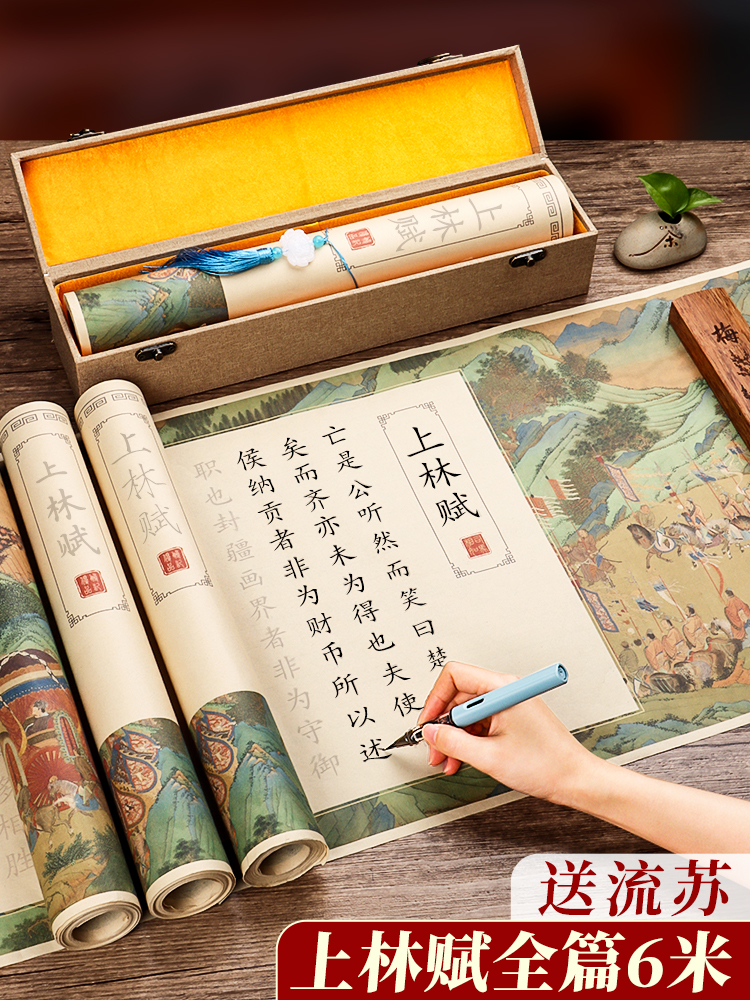 上林赋
茶
梅
上林赋
上林赋
上林赋
亡是公听然而笑曰楚
矣而齐亦未为得也夫使
侯纳贡者非为财币所以述
职也封疆画界者非为守御
相胜
送流苏
上林赋全篇6米